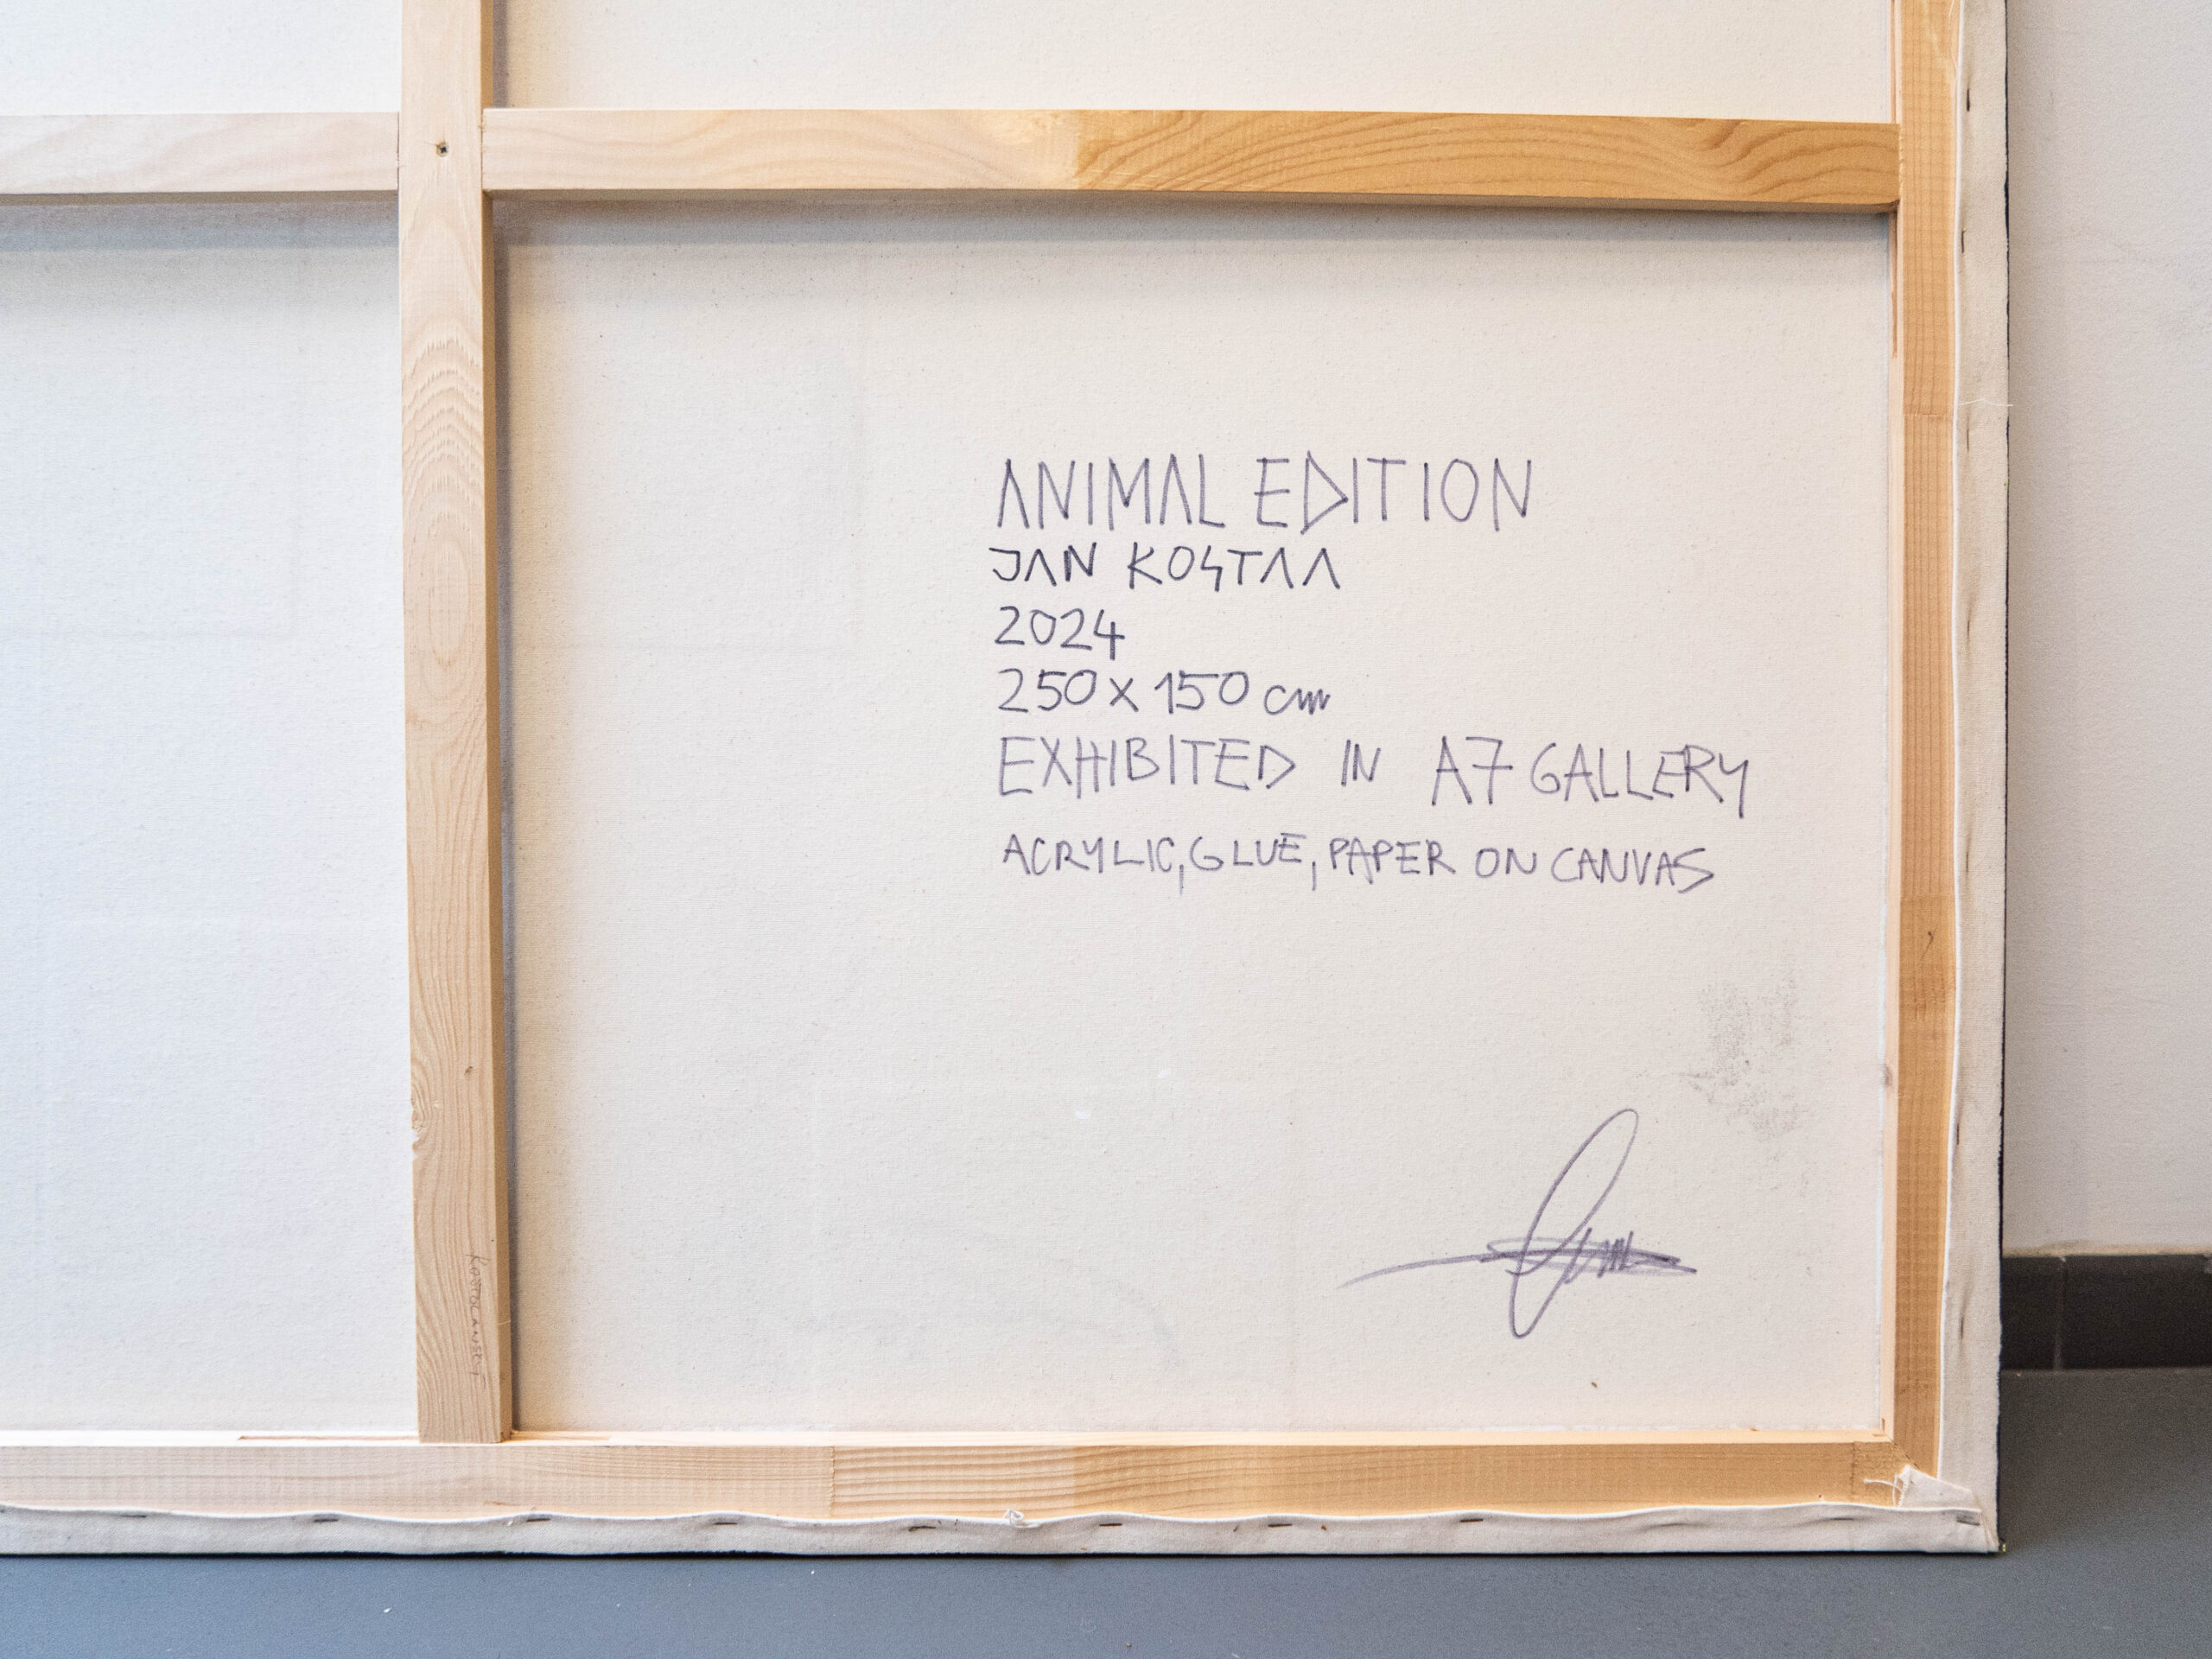 ANIMAL EDITION
JAN KOSTAA
2024
250 x 150 cm
EXHIBITED IN A7 GALLERY
ACRYLIC, GLUE, PAPER ON CANVAS